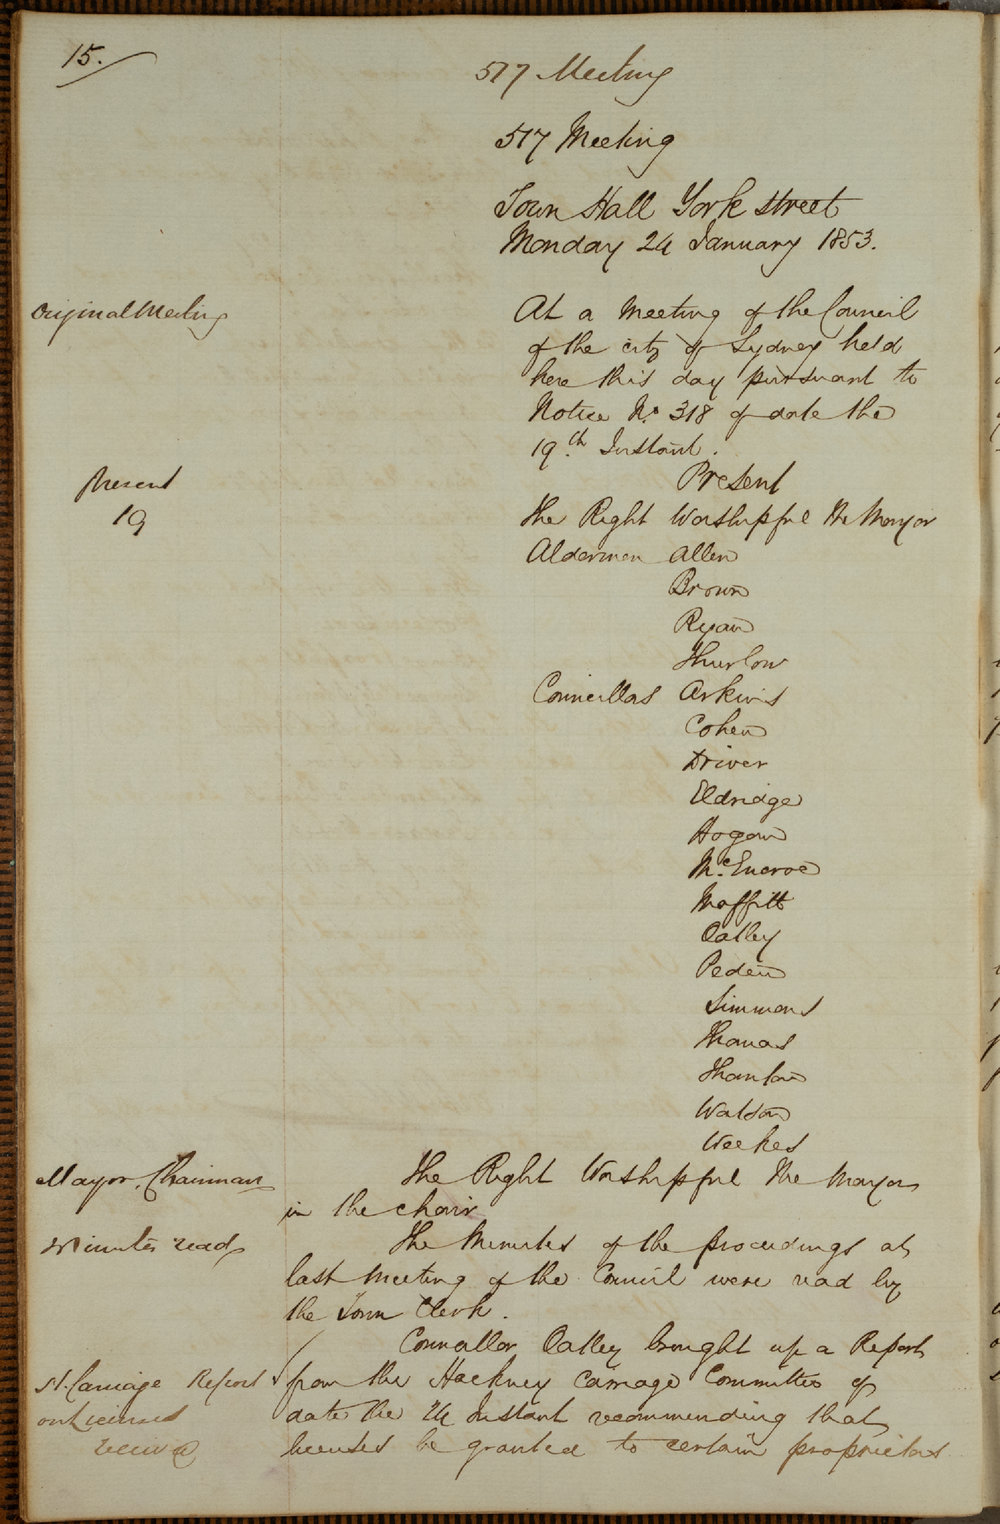 15.
517 Meeting
517 Meeting
Town Hall York street
Monday 24 January 1853.
Original Meeting
At a Meeting of the Council
of the city of Sydney held
here this day pursuant to
Notice No. 318 of date the
19th Instant.
Present
Present
19
The Right Worshipful the Mayor
Aldermen Allen
Brown
Ryan
Thurlow
Councillors Askins
Cohen
Driver
Eldridge
Hogan
McEncroe
Moffitt
Oatley
Peden
Simmons
Thomas
Watson
Weekes
Mayor. Chairman
The Right Worshipful the Mayor
in the chair
Minutes read
The Minutes of the proceedings at
last Meeting of the Council were read by
the Town Clerk.
Councillor Oatley brought up a Report
H. Carriage Report
from the Hackney Carriage Committee of
on Licenses
date the 24 Instant recommending that
received
licenses be granted to certain proprietors